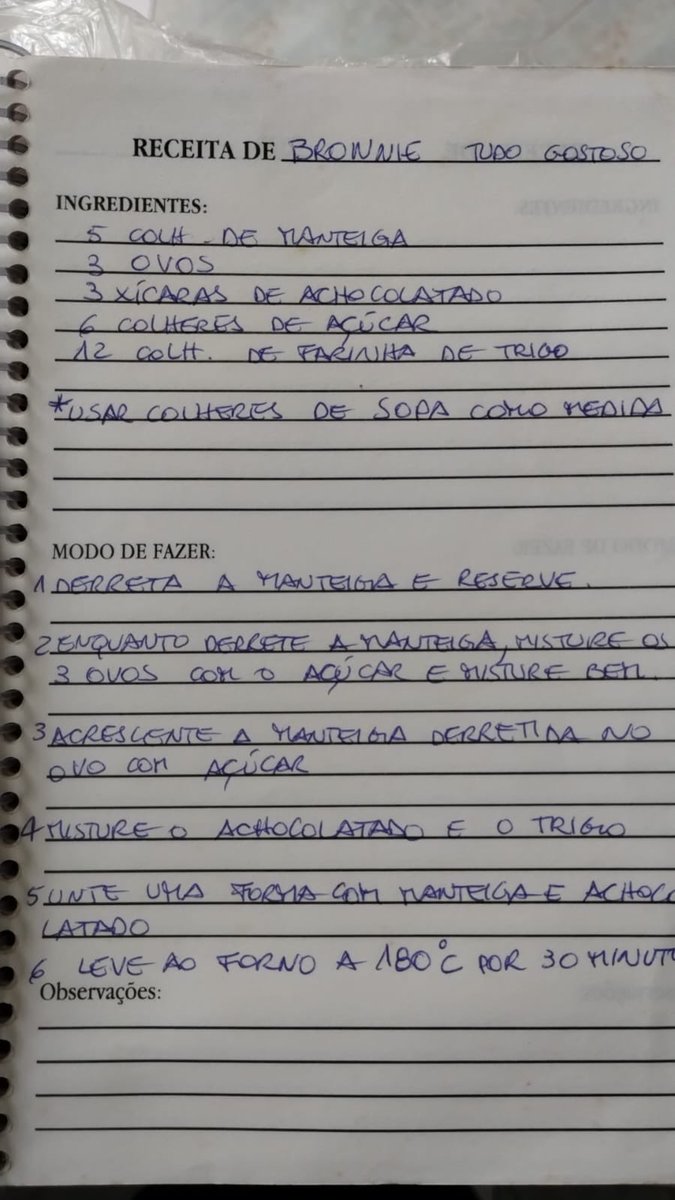 RECEITA DE BROWNIE TUDO GOSTOSO
INGREDIENTES:
5 COLH. DE MANTEIGA
3 OVOS
3 XÍCARAS DE ACHOCOLATADO
6 COLHERES DE AÇÚCAR
12 COLH. DE FARINHA DE TRIGO
*USAR COLHERES DE SOPA COMO MEDIDA
MODO DE FAZER:
1 DERRETA A MANTEIGA E RESERVE.
2 ENQUANTO DERRETE A MANTEIGA, MISTURE OS
3 OVOS COM O AÇÚCAR E MISTURE BEM.
3 ACRESCENTE A MANTEIGA DERRETIDA NO
OVO COM AÇÚCAR
4 MISTURE O ACHOCOLATADO E O TRIGO
5 UNTE UMA FORMA COM MANTEIGA E ACHOCO
LATADO
6 LEVE AO FORNO A 180°C POR 30 MINUT
Observações: